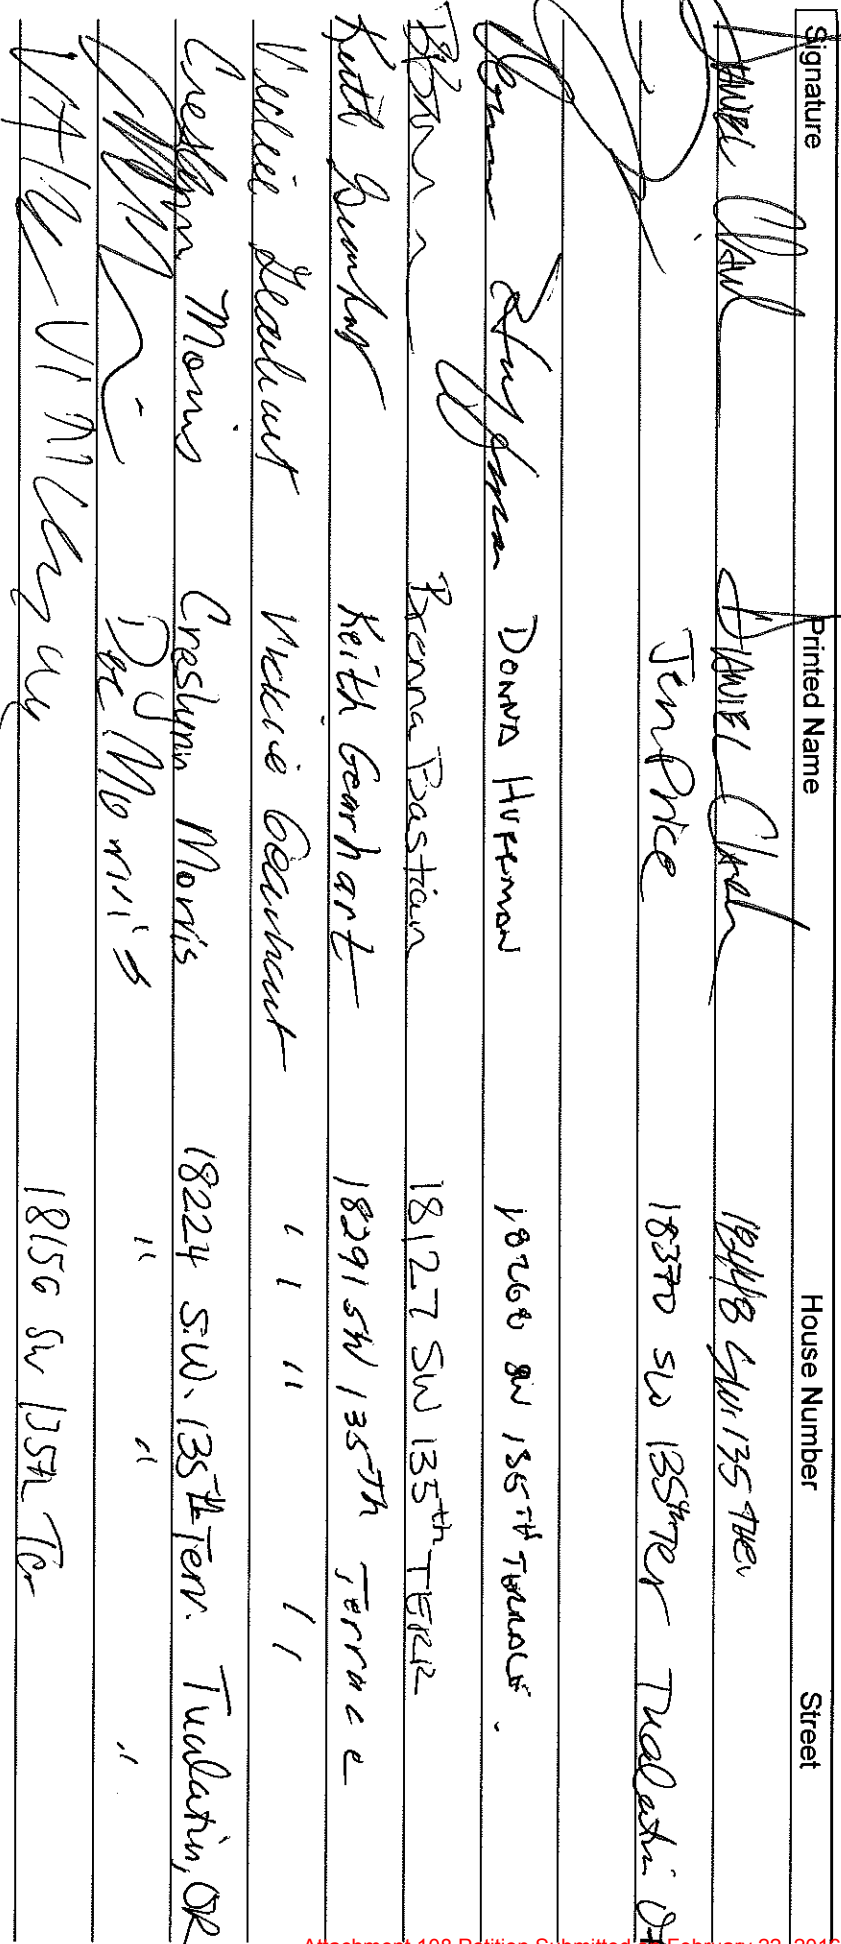 Signature Printed Name House Number Street
DANIEL DANIEL Clark SW 135 Ter
Jen Price 18370 SW 135th Ter Tualatin
DONNA HUFFMAN 18260 SW 135TH TERRACE.
Brenna Bastian 18127 SW 135th TERR
Keith Gearhart Keith Gearhart 18291 SW 135Th Terrace
Vickie Gearhart Vickie Gearhart " " "
Creslynn Morris Creslynn Morris 18224 S.W. 135th Terr. Tualatin, OR
Morris " " "
18150 SW 135th Ter
Attachment 108 Petition Submitted February 22, 2016